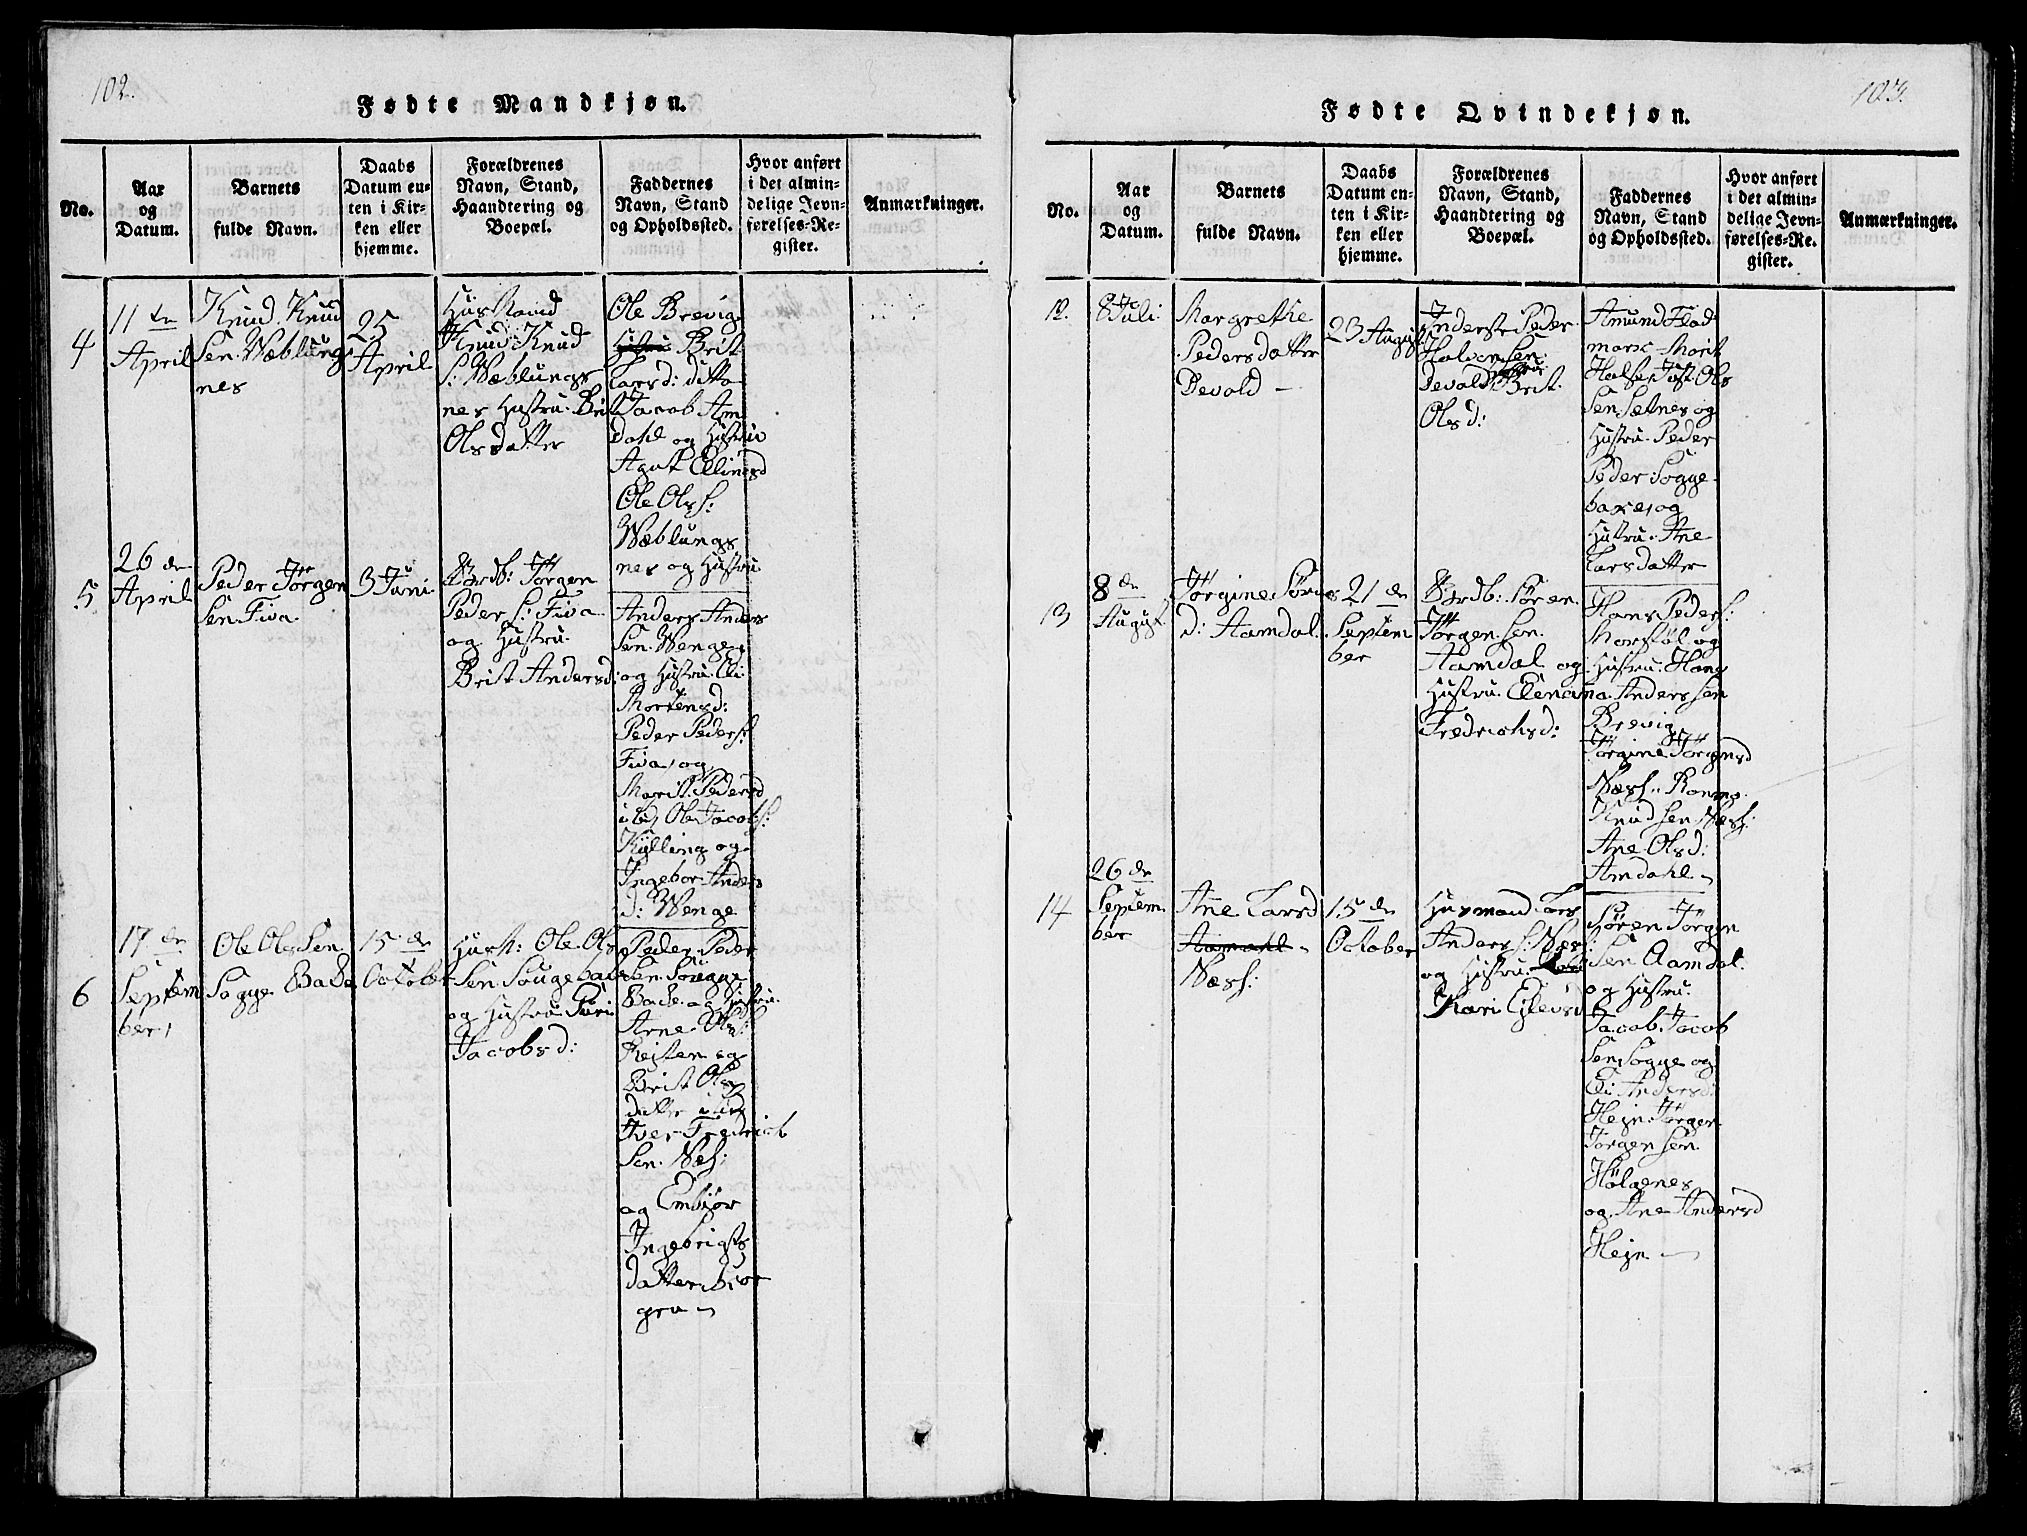 102.
Fødte Mandkjøn.
No.
Aar
og
Datum.
Barnets
fulde Navn.
Daabs
Datum en-
ten i Kir-
ken eller
hjemme.
Forældrenes
Navn, Stand,
Haandtering og
Boepæl.
Faddernes
Navn, Stand
og Opholdssted.
Hvor anført
i det almin-
delige Jevn-
førelses-Re-
gister.
Anmærkninger.
4
11 te
April
Knud Knud
Sen Wæblungs
nes
25
April
Husmand
Knud Knud
S: Wæblungs
nes Hustru Brit
Olsdatter
Ole Brevig
Brit
Larsd: ditto
Jacob Am
Dahl og Hustrue
Agat Ellingsd
Ole Ols S:
Wæblungs
nes og Hustru
5
26 de
April
Peder Jørgen
Sen Fiva
3 Juni
Brdb: Jørgen
Peder S: Fiva
og Hustru
Brit Andersd:
Anders Anders
Sen Wenge
og Hustru Eli
Mortensd:
Peder Peders:
Fiva, og
Marit Pedersd
ibid Ole Jacobs:
Kylling og
Ingebor Anders
d: Wenge
6
17 de
Septem
ber,
Ole Ols Sen
Sogge Bache
15 de
October
Husm: Ole Ols
Sen Souge bach
og Hustru Guri
Jacobsd:
Peder Peder
Sen Sougge
Bache og Hustru
Arne Ols:
Brit Ols
datter ibid
Iver Fredrich
Sen Næs:
og Embiør
Ingebrigts
datter
103.
Fødte Qvindekjøn.
No.
Aar
og
Datum.
Barnets
fulde Navn.
Daabs
Datum en-
ten i Kir-
ken eller
hjemme.
Forældrenes
Navn, Stand,
Haandtering og
Boepæl.
Faddernes
Navn, Stand
og Opholdssted.
Hvor anført
i det almin-
delige Jevn-
førelses-Re-
gister.
Anmærkninger.
12.
8 Juli
Margrethe
Pedersdatter
Devold
23 August
Inderste Peder
Halvorsen
Devold Brit
Olsd:
Amund Flad
mark Marit
Halse, Just Ols
Sen Sætnes og
Hustru Peder
Peder Sogge
bache, og
Hustru Ane
Larsdatter
13
8 de
August
Jørgine Sørens
d: Aamdal
21 de
Septem
ber
Brdb: Søren
Jørgen Sen
Aamdal og
Hustru Elenana
Fredrichsd:
Hans Peders:
Morstøl og
Hustru Hans
Anders Sen
Brevig
Jørgine Jørgensd
Næss: Rasmo
Knud Sen Næs:
Ane Olsd:
Amdahl
14
26 de
Septem
ber
Ane Larsd
Aamdahl
Næss:
15 de
October
Husmand Lars
Anders S: Næs:
og Hustru
Kari Ejlevsd
Søren Jørgen
Sen Aamdal
og Hustru
Jacob Jacob
Sen Sogge og
Eli Andersd:
Hejn Jørgen
Jørgen Sen
Hølgenes
og Ane Andersd
Hejn